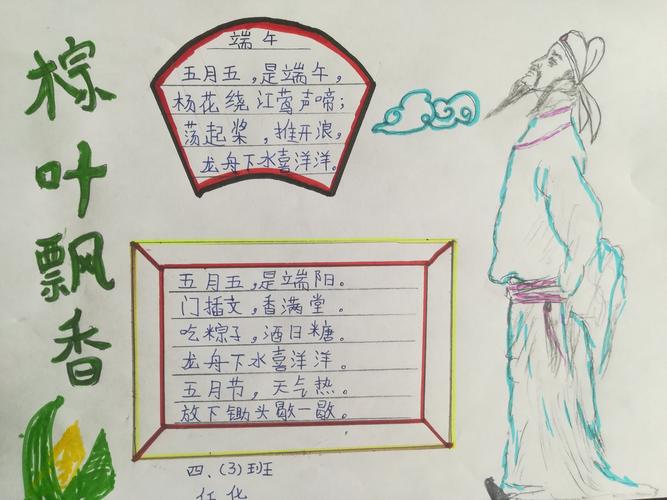 棕叶飘香
端午
五月五,是端午,
杨花绕江莺声啼;
荡起桨,推开浪,
龙舟下水喜洋洋。
五月五,是端阳。
门插文,香满堂。
吃粽子,洒白糖。
龙舟下水喜洋洋。
五月节,天气热。
放下锄头歇一歇。
四、(3)班